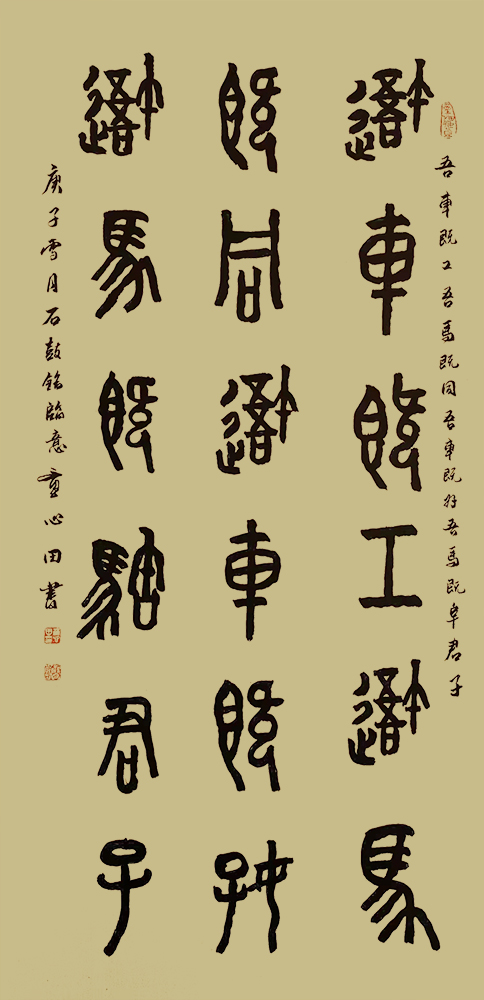 吾車既工吾馬既同吾車既好吾馬既阜君子
吾車既工吾馬
既同吾車既好
吾馬既騊君子
庚子雪月石鼓銘臨意童心田書